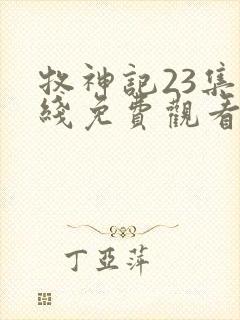 牧神記23集
綫免費觀看
丁亞萍